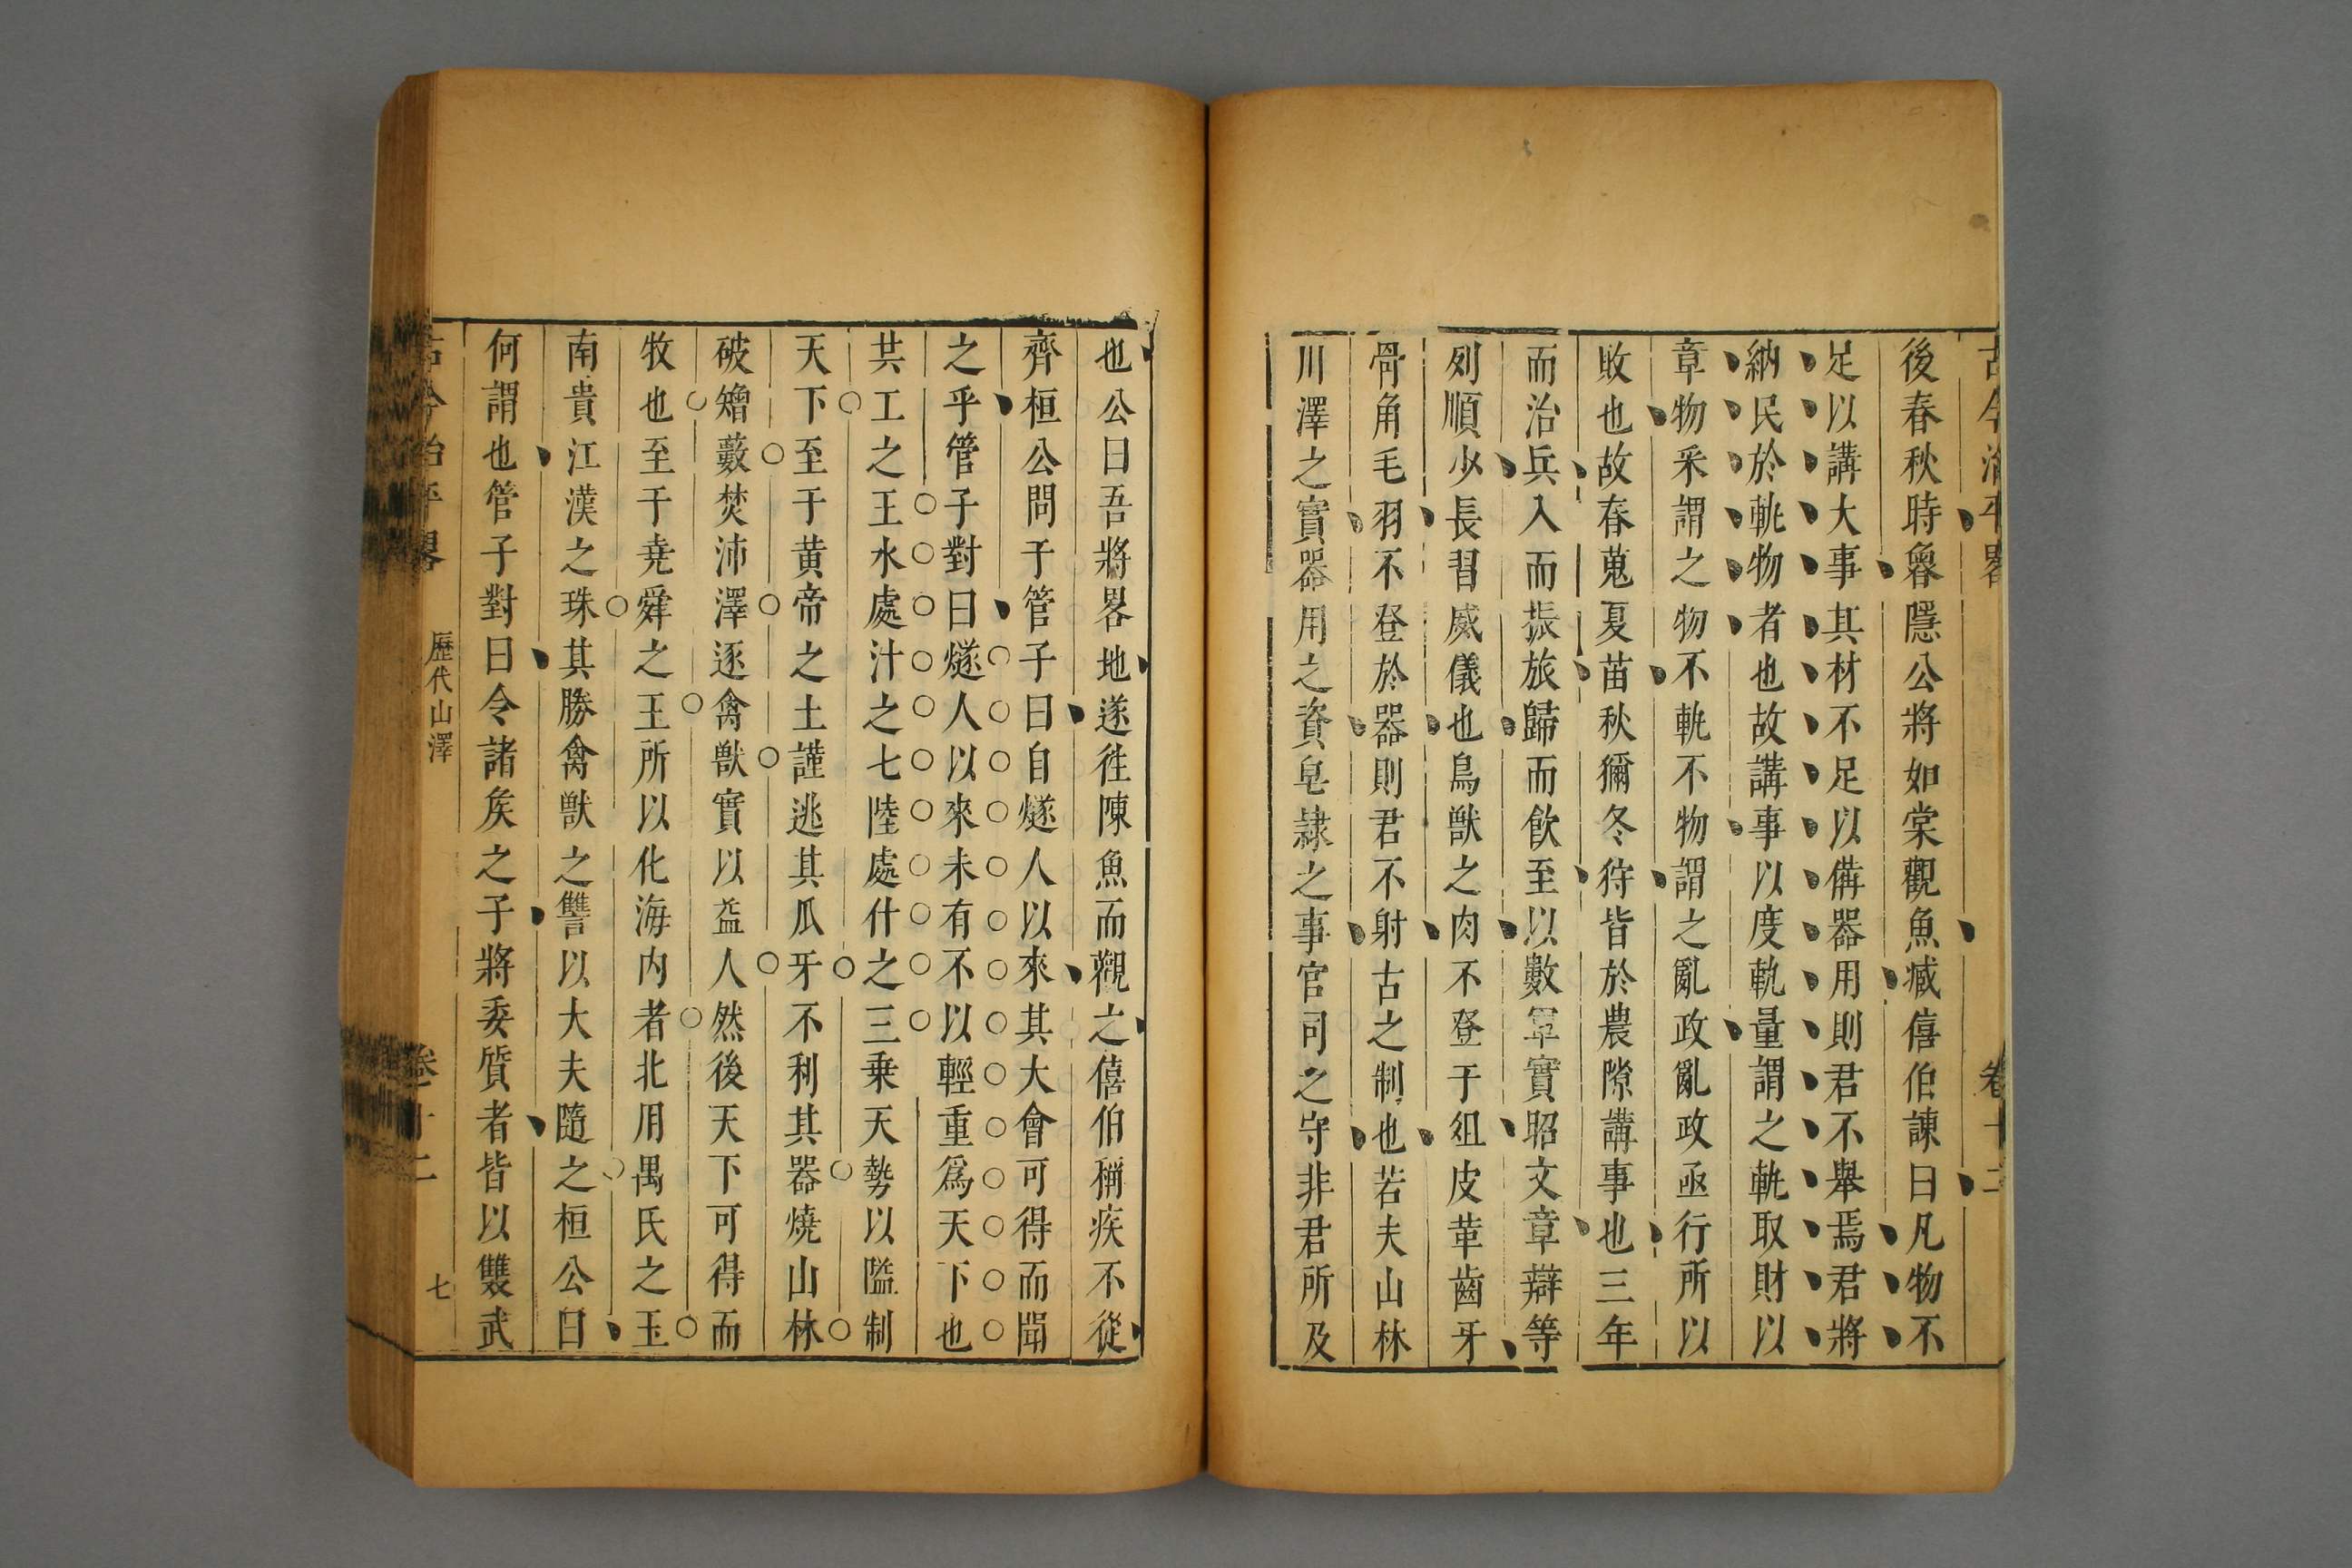 古今治平畧 卷十二
後春秋時魯隱公將如棠觀魚臧僖伯諫曰凡物不
足以講大事其材不足以備器用則君不舉焉君將
納民於軌物者也故講事以度軌量謂之軌取財以
章物采謂之物不軌不物謂之亂政亂政亟行所以
敗也故春蒐夏苗秋獮冬狩皆於農隙講事也三年
而治兵入而振旅歸而飲至以數軍實昭文章辯等
列順少長習威儀也鳥獸之肉不登于俎皮革齒牙
骨角毛羽不登於器則君不射古之制也若夫山林
川澤之實器用之資皂隷之事官司之守非君所及
也公曰吾將畧地遂徃陳魚而觀之僖伯稱疾不從
齊桓公問于管子曰自燧人以來其大會可得而聞
之乎管子對曰燧人以來未有不以輕重爲天下也
共工之王水處汁之七陸處什之三乗天勢以隘制
天下至于黄帝之土謹逃其瓜牙不利其器燒山林
破矰藪焚沛澤逐禽獸實以益人然後天下可得而
牧也至于堯舜之王所以化海内者北用禺氏之玉
南貴江漢之珠其勝禽獸之讐以大夫隨之桓公曰
何謂也管子對曰令諸矦之子將委質者皆以雙武
古今治平畧 歷代山澤 卷十二 七